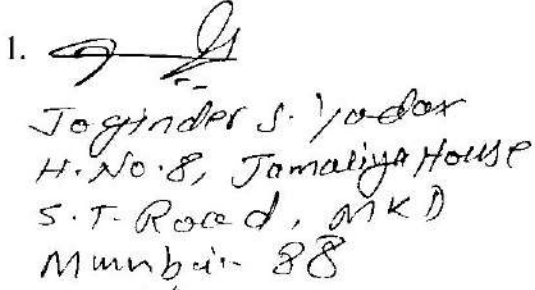 1.
Joginder S. Yadav
H. No. 8, Jamaliya House
S. T. Road, MKD
Mumbai- 88